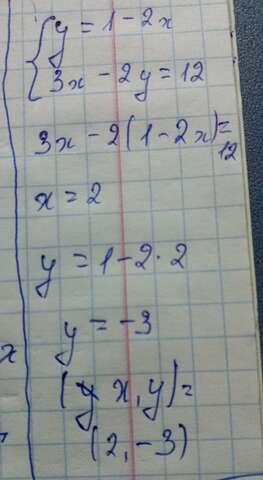 y = 1 - 2x
3x - 2y = 12
3x - 2(1 - 2x) =
12
x = 2
y = 1 - 2 · 2
y = -3
x
(x, y) =
(2, -3)